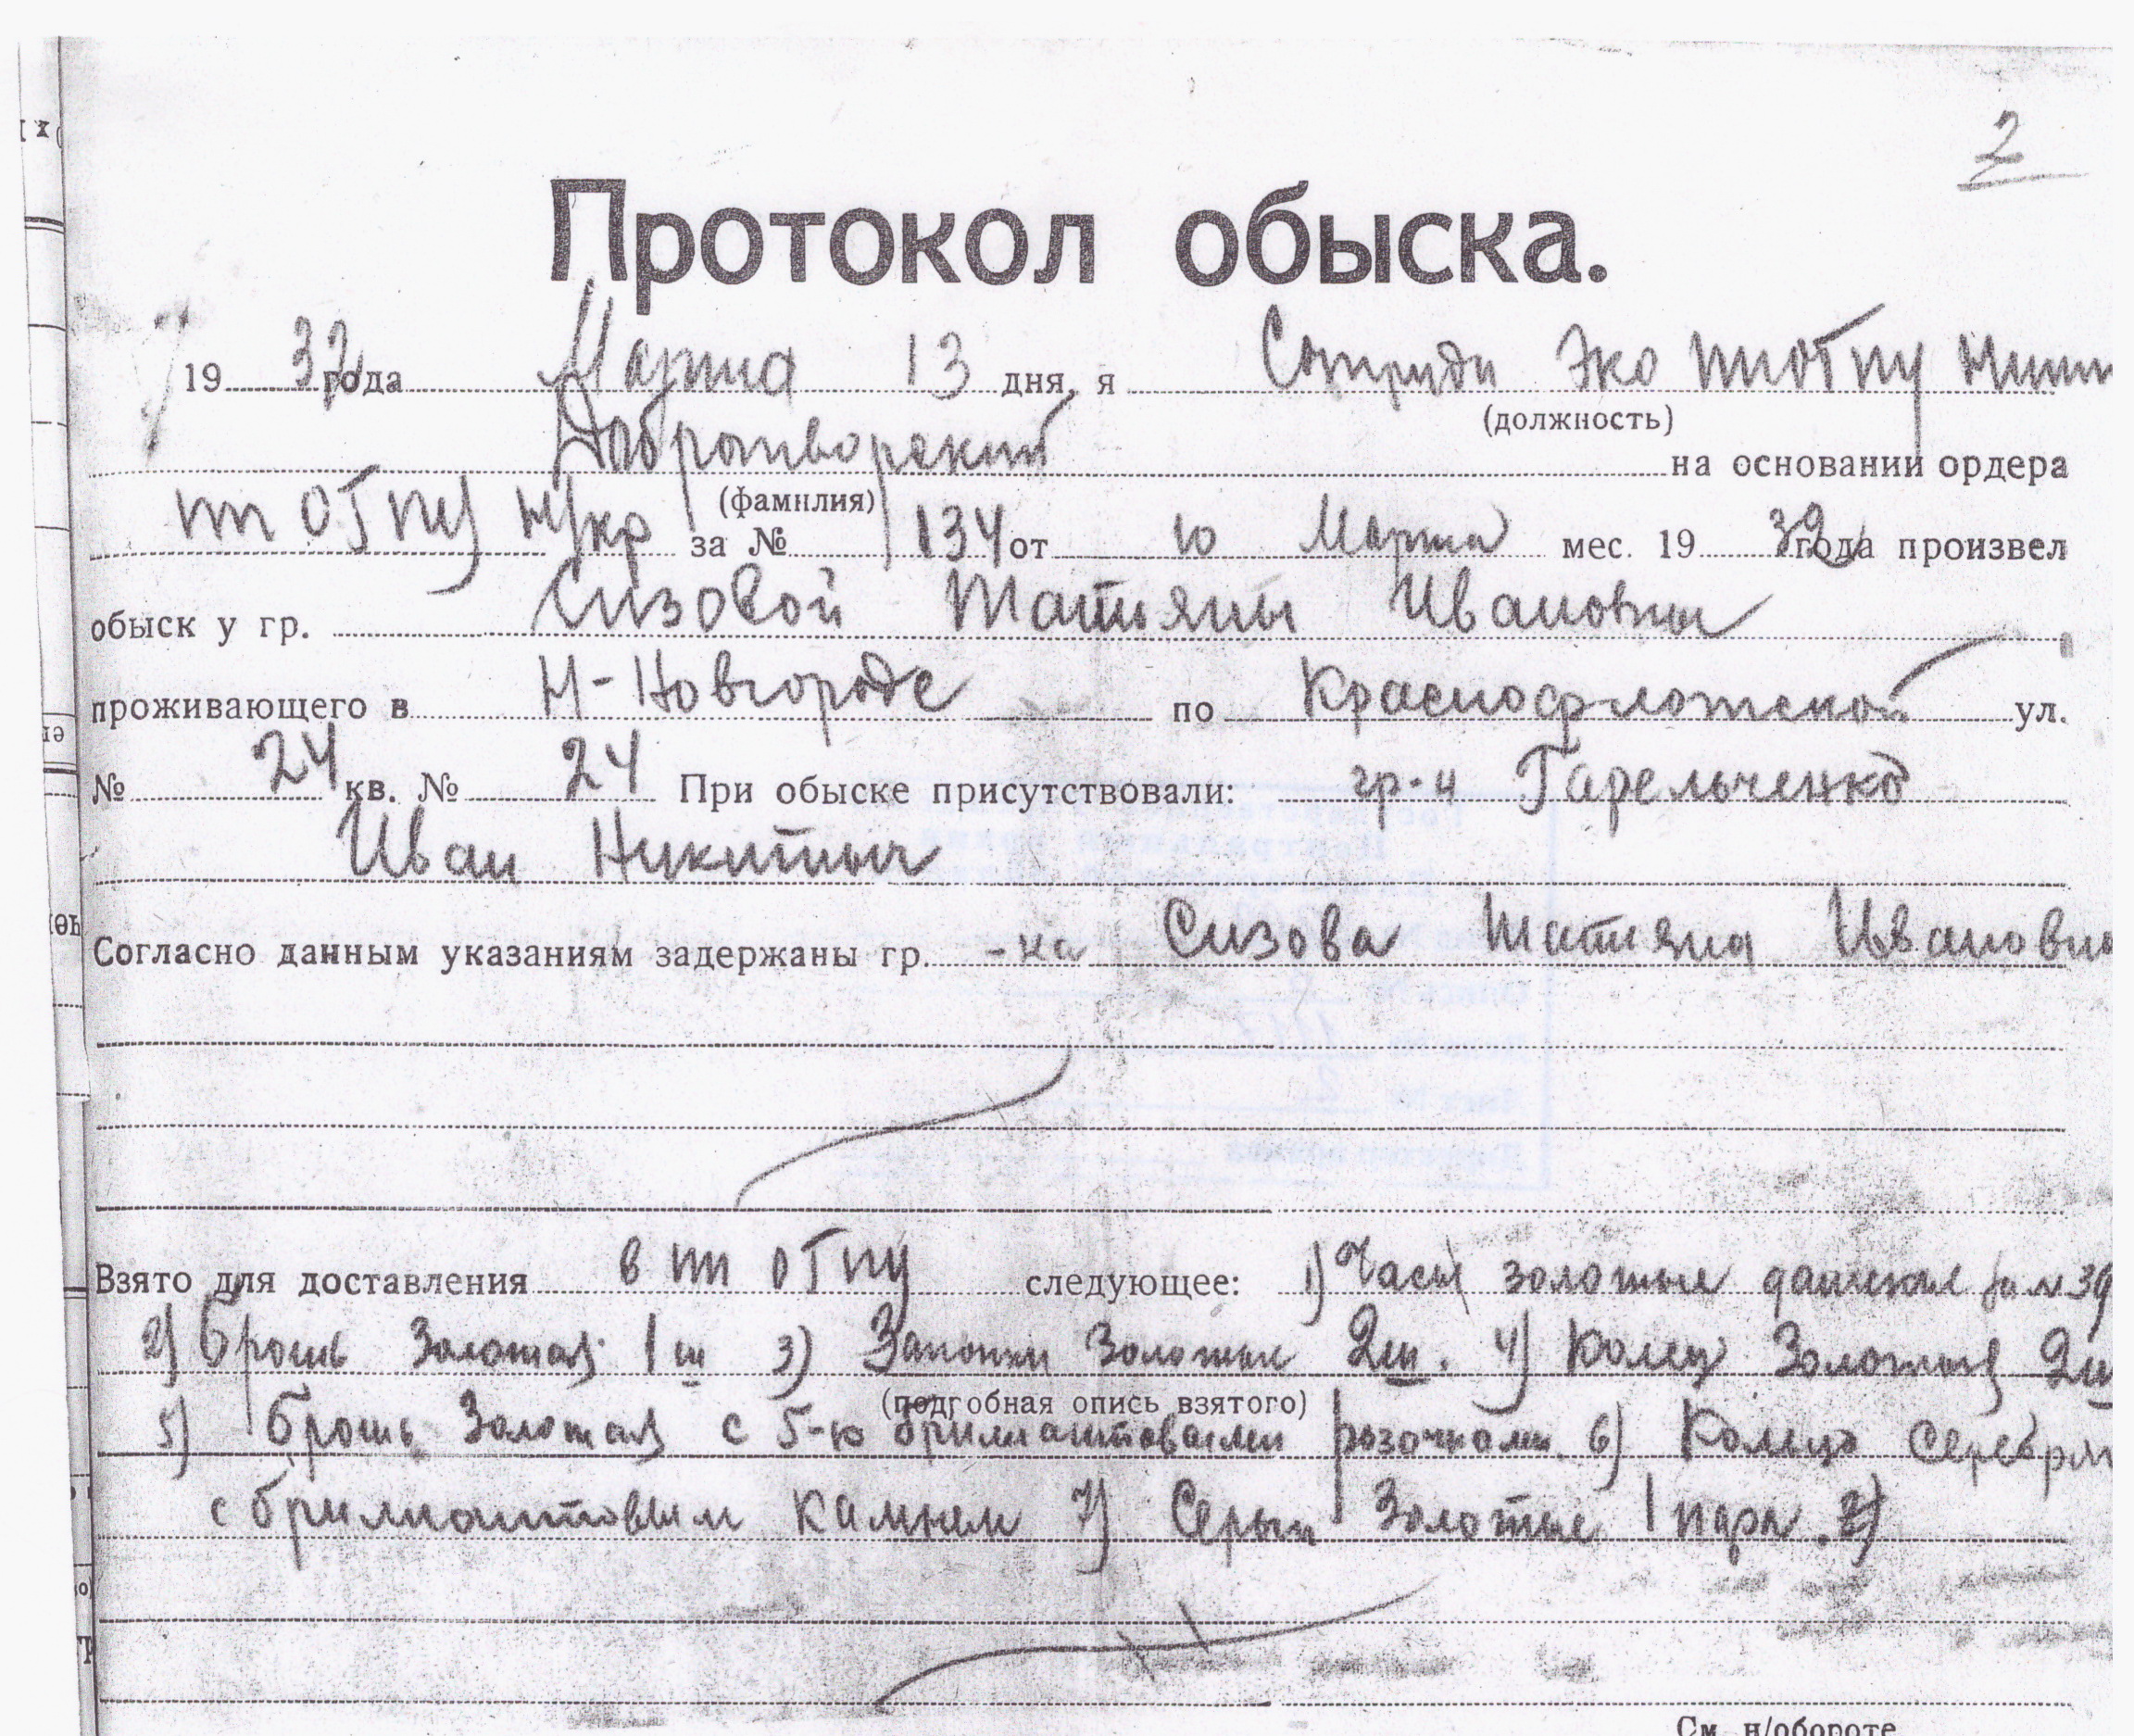 2
Протокол обыска.
1932 года Марта 13 дня, я Сотруди ЭКО ПП ОГПУ
(должность)
Добротворский на основании ордера
(фамилия)
ПП ОГПУ НКр за № 134 от 10 Марта мес. 1932 года произвел
обыск у гр. Сизовой Татьяны Ивановны
проживающего в Н-Новгороде по Краснофлотской ул.
№ 24 кв. № 24 При обыске присутствовали: гр-н Гарельченко
Иван Никитич
Согласно данным указаниям задержаны гр. -ка Сизова Татьяна Ивановна
Взято для доставления в ПП ОГПУ следующее: 1) Часы золотые дамские за №
2) брошь Золотая 1 ш 3) Запонки Золотые 2ш. 4) Колец Золотых 2ш
(подробная опись взятого)
5) брошь Золотая с 5-ю брилиантовыми розочками 6) Кольцо Серебрян
с брилиантовым камнем 7) Серьги Золотые 1 пара.
См. н/обороте